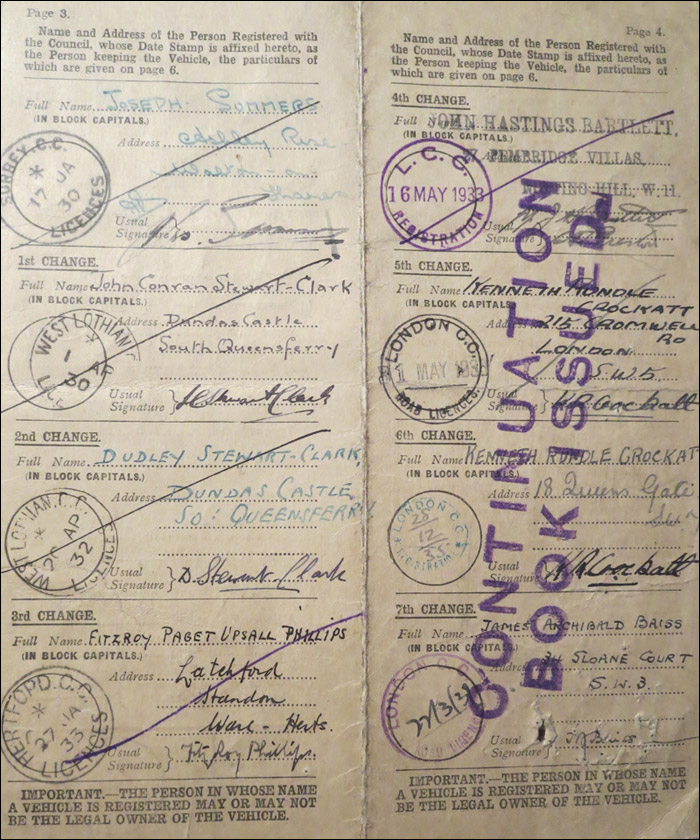 Page 3.
Name and Address of the Person Registered with
the Council, whose Date Stamp is affixed hereto, as
the Person keeping the Vehicle, the particulars of
which are given on page 6.
Full Name JOSEPH SOMMERS
(IN BLOCK CAPITALS.)
Address Rise
Walton-on-
Thames
Usual
Signature
SURREY C.C.
17 JA
30
LICENCES
1st CHANGE.
Full Name John Conran Stewart-Clark
(IN BLOCK CAPITALS.)
Address Dundas Castle
South Queensferry
Usual
Signature } JCStewart Clark
WEST LOTHIAN
1 AP
30
2nd CHANGE.
Full Name DUDLEY STEWART-CLARK,
(IN BLOCK CAPITALS.)
Address DUNDAS CASTLE
SO: QUEENSFERRY
Usual
Signature } D. Stewart-Clark
WEST LOTHIAN C.C.
AP
32
LICENCES
3rd CHANGE.
Full Name FITZROY PAGET UPSALL PHILLIPS
(IN BLOCK CAPITALS.)
Address Latchford
Standon
Ware - Herts.
Usual
Signature } FitzRoy Phillips.
HERTFORD C.C.
27 JA
33
LICENCES
IMPORTANT.—THE PERSON IN WHOSE NAME
A VEHICLE IS REGISTERED MAY OR MAY NOT
BE THE LEGAL OWNER OF THE VEHICLE.
Page 4.
Name and Address of the Person Registered with
the Council, whose Date Stamp is affixed hereto, as
the Person keeping the Vehicle, the particulars of
which are given on page 6.
4th CHANGE.
Full JOHN HASTINGS BARTLETT,
(IN BLOCK CAPITALS.)
PEMBRIDGE VILLAS,
NOTTING HILL, W.11.
Usual
Signature
L.C.C.
16 MAY 1933
REGISTRATION
5th CHANGE.
Full Name KENNETH RUNDLE
CROCKATT
(IN BLOCK CAPITALS.)
Address 215 CROMWELL
RD
LONDON
S.W.5.
Usual
Signature } KRCrockatt
LONDON C.C.
MAY 193
ROAD LICENCES
6th CHANGE.
Full Name KENNETH RUNDLE CROCKAT
(IN BLOCK CAPITALS.)
Address 18 Queens Gate
Usual
Signature } KRCrockatt
LONDON C.C.
12
35
7th CHANGE.
Full Name JAMES ARCHIBALD BAISS
(IN BLOCK CAPITALS.)
Address 34 SLOANE COURT
S.W.3.
Usual
Signature } J A Baiss
LONDON C.C.
ROAD LICENCES
CONTINUATION
BOOK ISSUED
IMPORTANT.—THE PERSON IN WHOSE NAME
A VEHICLE IS REGISTERED MAY OR MAY NOT
BE THE LEGAL OWNER OF THE VEHICLE.